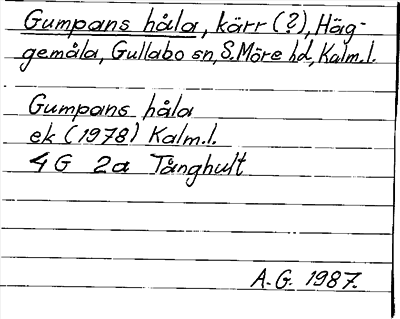 Gumpans håla, kärr (?), Häg-
gemåla, Gullabo sn, S. Möre hd, Kalm.l.
Gumpans håla
ek (1978) Kalm.l.
4G 2a Tånghult
A.G. 1987.